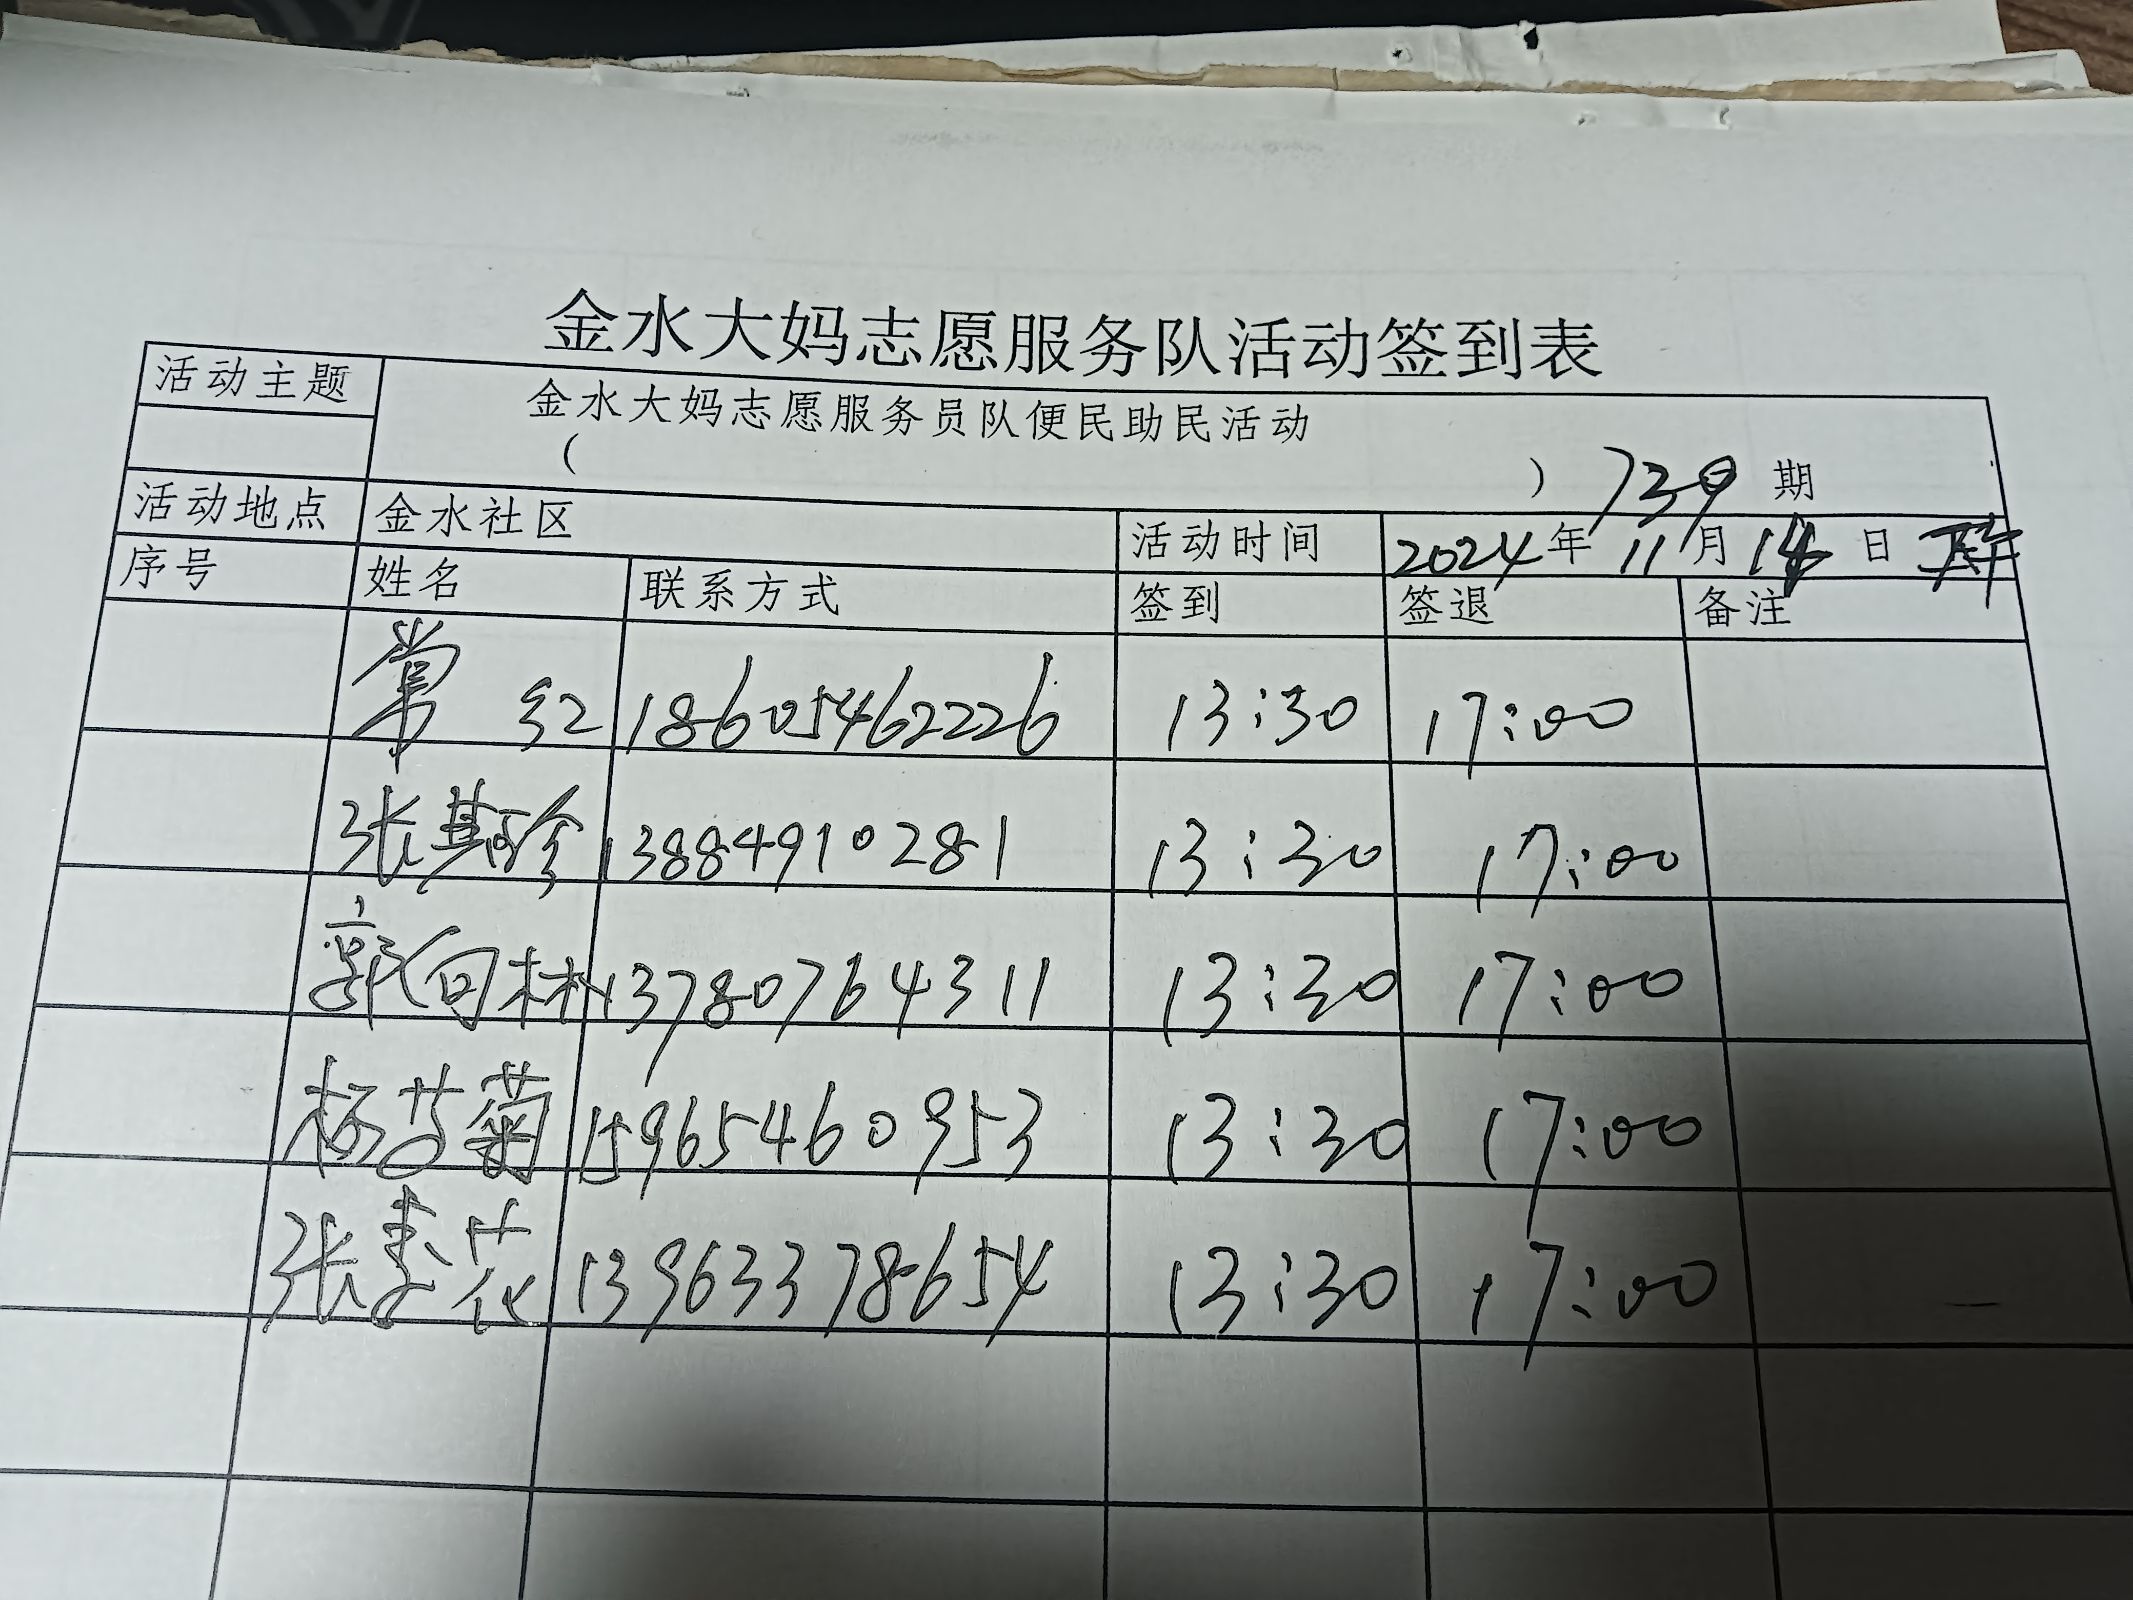 金水大妈志愿服务队活动签到表
活动主题 金水大妈志愿服务员队便民助民活动
( ) 739 期
活动地点 金水社区 活动时间 2024年 11月 14日
序号 姓名 联系方式 签到 签退 备注
常红 18605462226 13:30 17:00
张 13884910281 13:30 17:00
郭向林 13780764311 13:30 17:00
杨芳菊 15965460953 13:30 17:00
张素花 13963378654 13:30 17:00